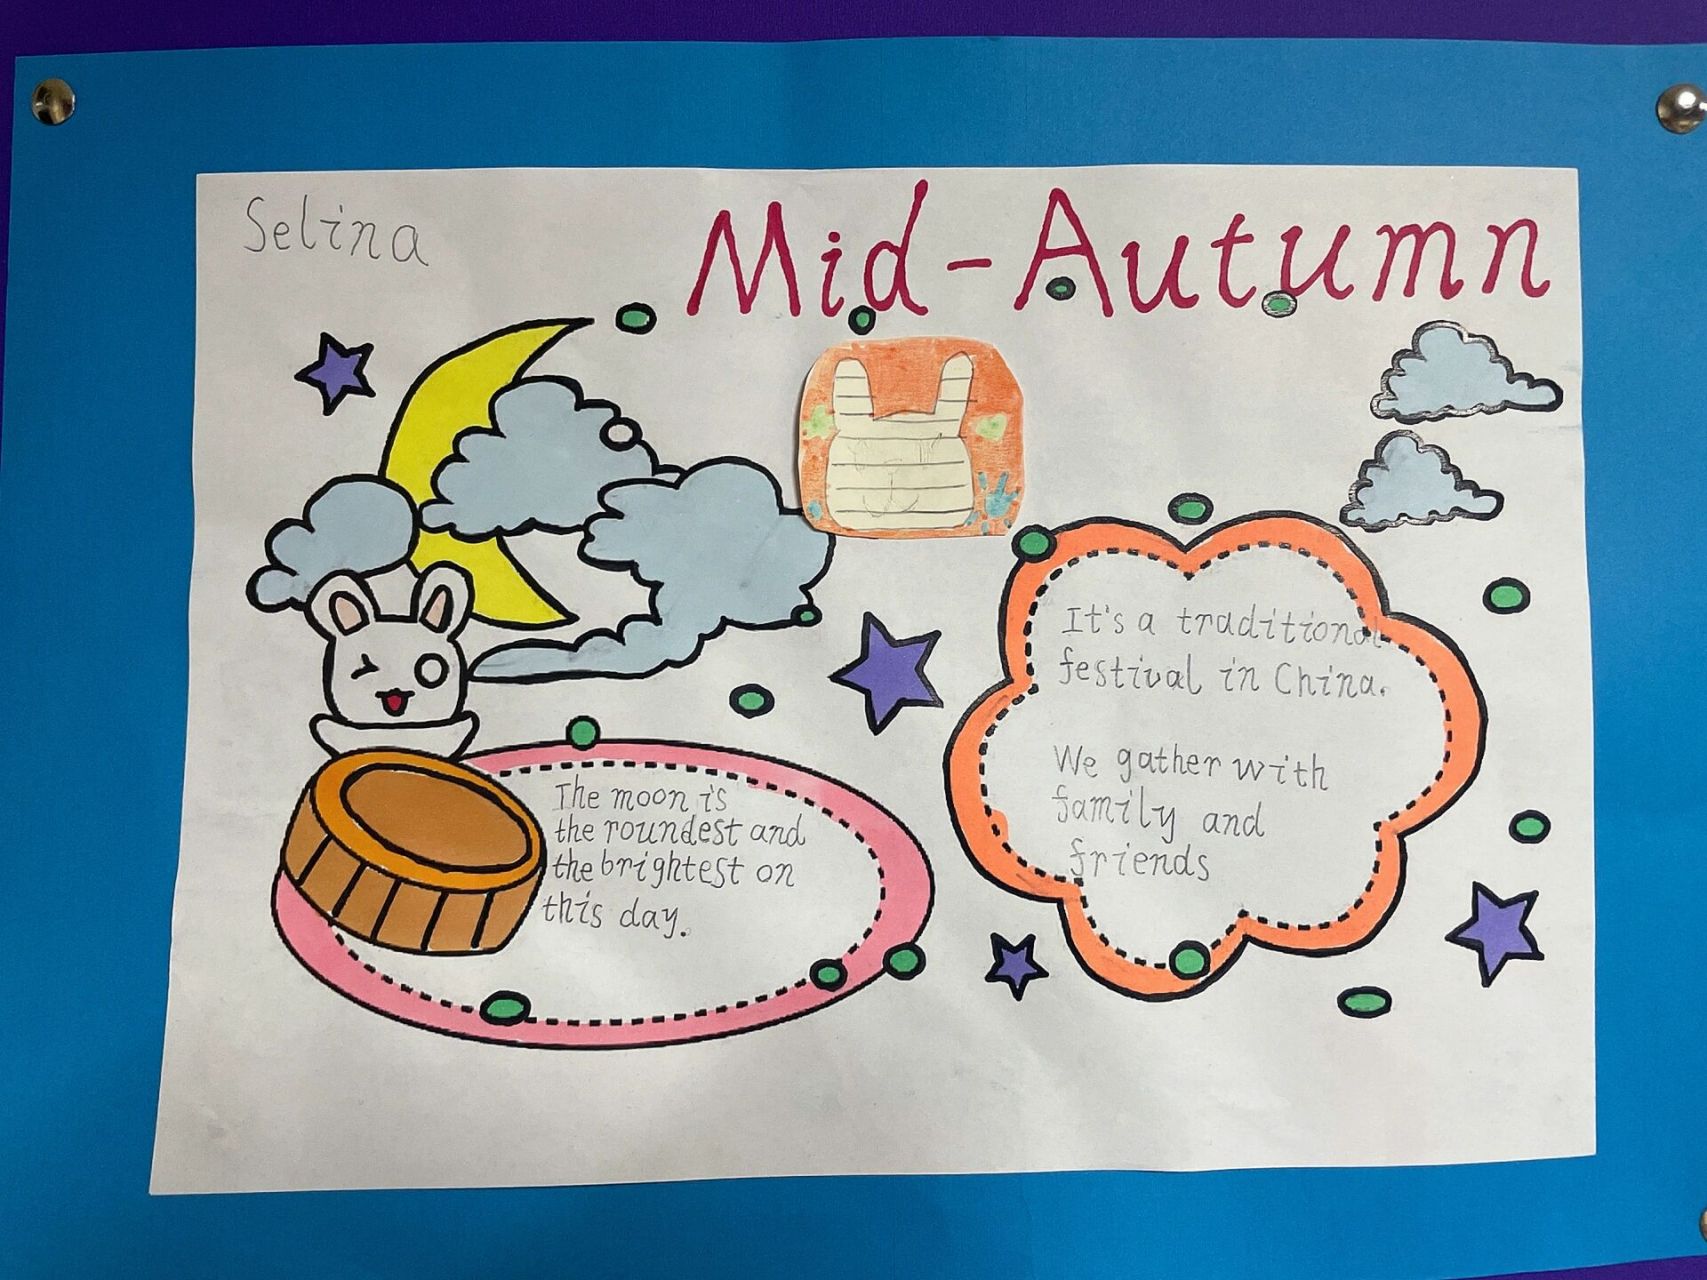 Selina
Mid-Autumn
The moon is
the roundest and
the brightest on
this day.
It's a traditional
festival in China.
We gather with
family and
friends